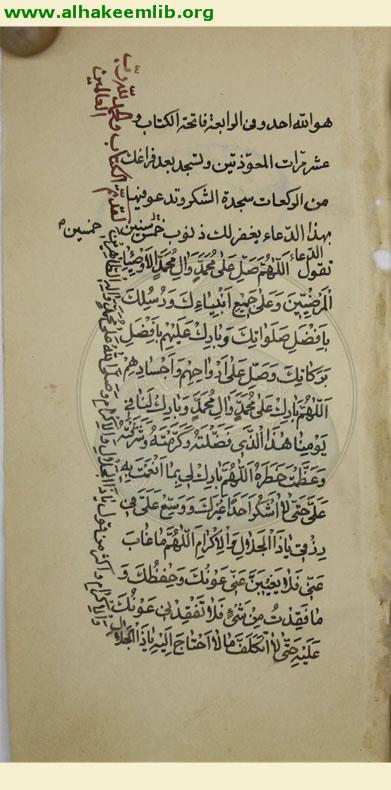 www.alhakeemlib.org
هو الله احد وفى الرابعة فاتحة الكتاب و
عشر مرات المعوذتين وتسجد بعد فراغك
من الركعات سجدة الشكر وتدعو فيها
بهذا الدعاء يغفر لك ذنوب خمسين
خمسين
الدعاء
تقول اَللّهُمَّ صَلِّ عَلى مُحَمَّدٍ وَالِ مُحَمَّدٍ الاَوْصِيَاءِ
المَرْضِيّينَ وَعَلى جَميعِ اَنْبِيَاءِكَ وَرُسُلِكَ
بِاَفْضَلِ صَلَواتِكَ وَبَارِكْ عَلَيْهِمْ بِاَفْضَلِ
بَرَكاتِكَ وَصَلِّ عَلى اَرْواحِهِمْ وَاَجْسادِهِمْ
اَللّهُمَّ بَارِكْ عَلى مُحَمَّدٍ وَالِ مُحَمَّدٍ وَبَارِكْ لَنا فى
يَوْمِنا هذَا الَّذى فَضَّلْتَهُ وَكَرَّمْتَهُ وَشَرَّفْتَهُ
وَعَظَّمْتَ خَطَرَهُ اَللّهُمَّ بَارِكْ لى بِما اَنْعَمْتَ بِهِ
عَلَىَّ حَتّى لا اَشْكُرَ اَحَداً غَيْرَكَ وَوَسِّعْ عَلَىَّ فى
رِزْقى يا ذَا الجَلالِ وَالاِكْرامِ اَللّهُمَّ ما غابَ
عَنّى فَلا يَغيبَنَّ عَنّى عَوْنُكَ وَحِفْظُكَ وَ
ما فَقَدْتُ مِنْ شَىْءٍ فَلا تُفْقِدْنى عَوْنَكَ
عَلَيْهِ حَتّى لا اَتَكَلَّفَ ما لا اَحْتاجُ اِلَيْهِ يا ذَا الجَلالِ
وَالاِكْرامِ واكثر من قول يا ذا الجلال والاكرام وصلى الله على محمد واله الطاهرين
لقد تم الكتاب والحمد لله رب
العالمين